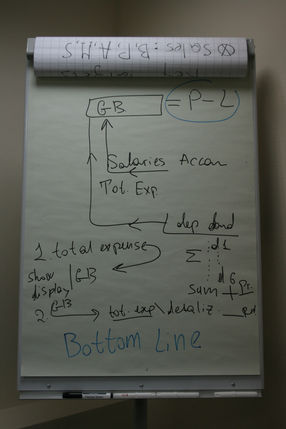 Sales: B, P, A, M, S
GB = P-L
Salaries Accan
Tot. Exp
1 dep dond
1. total expense
Σ d1
show GB
display
d 6
sum
2. GB tot. exp\detaliz.
Bottom Line